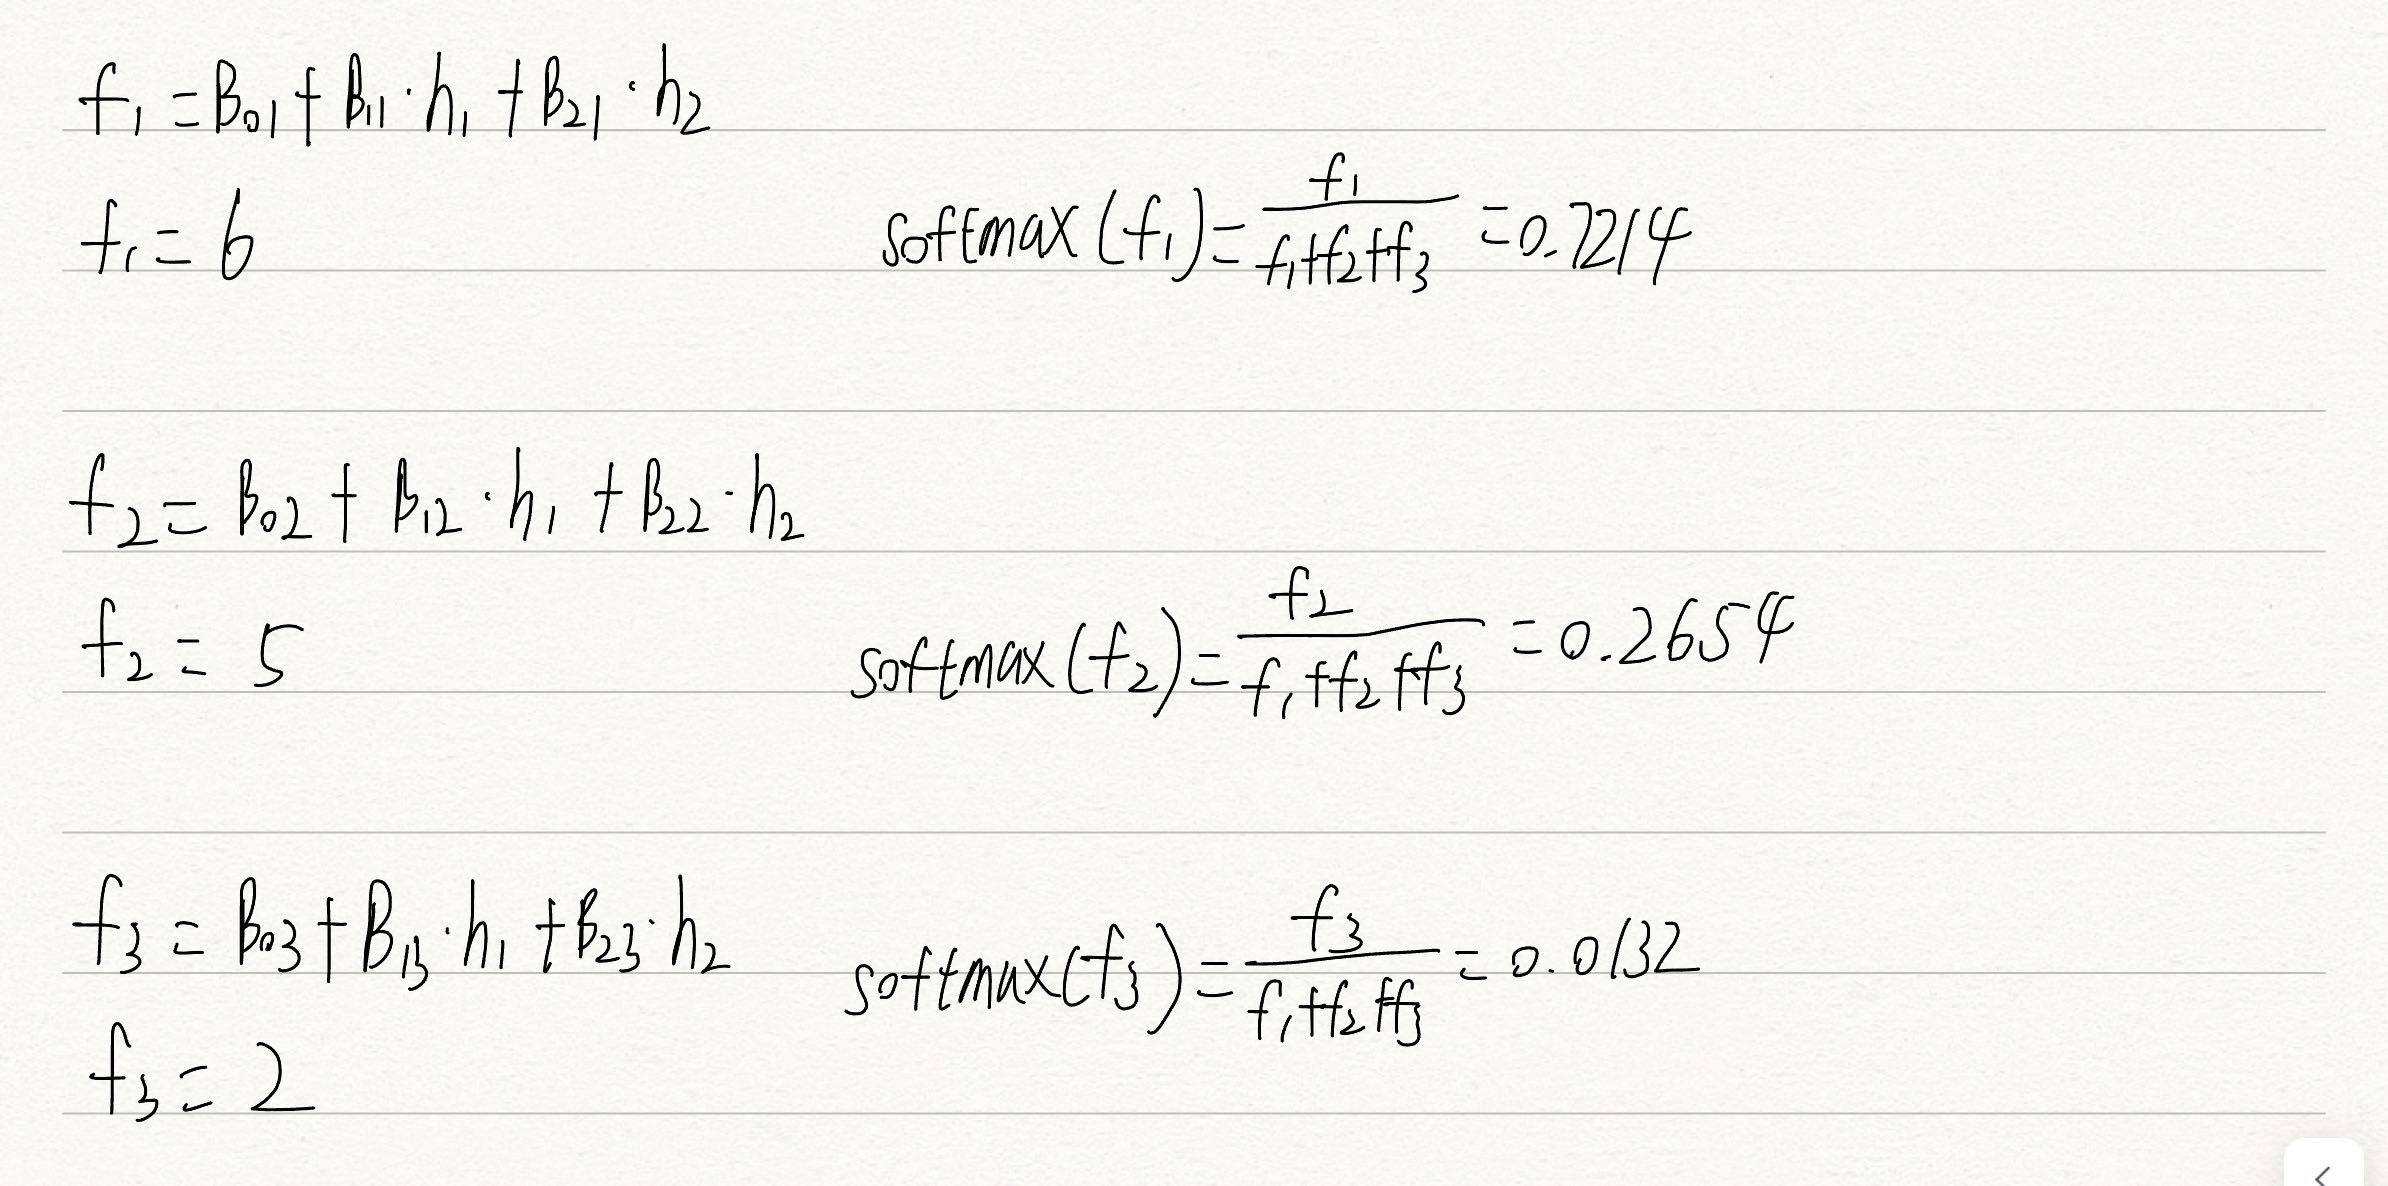 f₁ = β₀₁ + β₁₁ · h₁ + β₂₁ · h₂
f₁ = 6
softmax(f₁) = f₁ / (f₁+f₂+f₃) = 0.7214
f₂ = β₀₂ + β₁₂ · h₁ + β₂₂ · h₂
f₂ = 5
softmax(f₂) = f₂ / (f₁+f₂+f₃) = 0.2654
f₃ = β₀₃ + β₁₃ · h₁ + β₂₃ · h₂
softmax(f₃) = f₃ / (f₁+f₂+f₃) = 0.0132
f₃ = 2